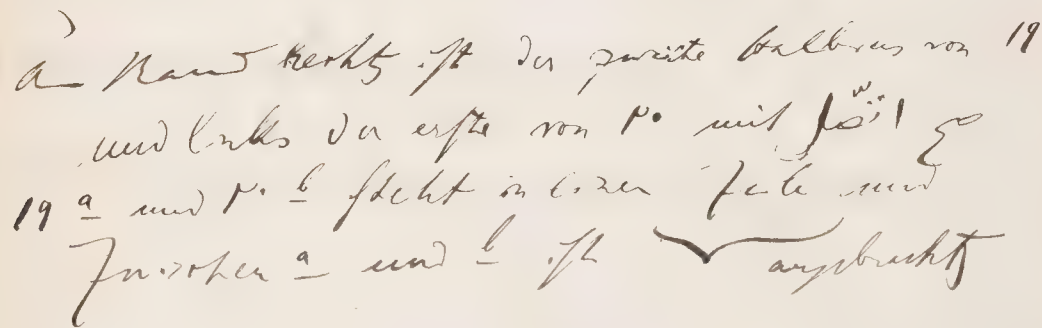 Am Rand rechts ist der zweite Halbvers von ١٩
und links der erste von ٢٠ mit
١٩ a und ٢٠ b steht in einer Zeile und
Zwischen a und b ist angebracht